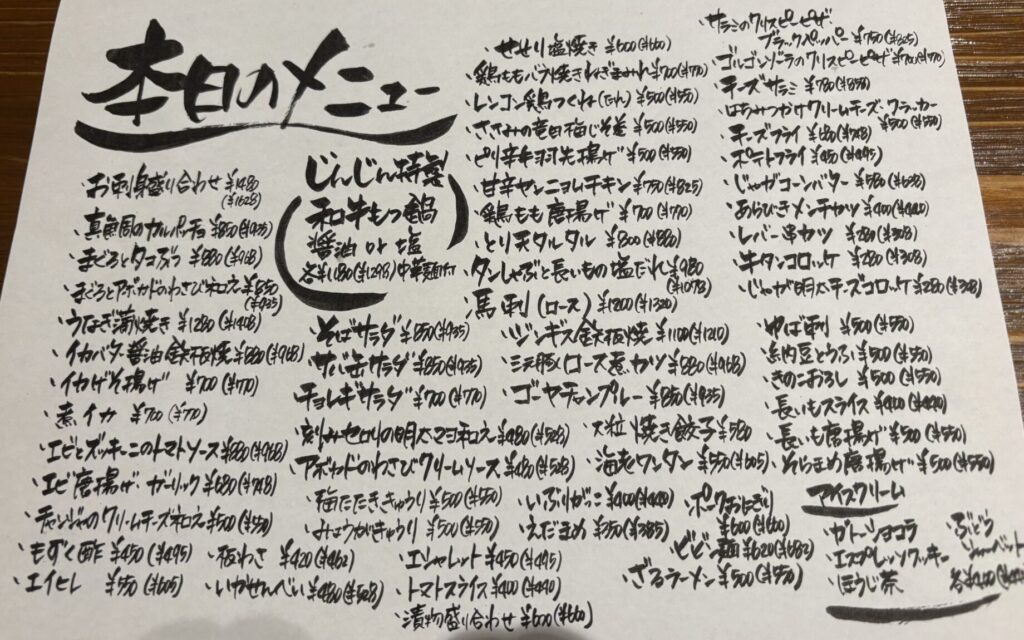 本日のメニュー
・お刺身盛り合わせ ¥1480
(¥1628)
・真鯛のカルパッチョ ¥850(¥935)
・まぐろとタコぶつ ¥880(¥968)
・まぐろとアボカドのわさび和え ¥850
(¥935)
・うなぎ蒲焼き ¥1280(¥1408)
・イカバター醤油鉄板焼 ¥880(¥968)
・イカげそ揚げ ¥700(¥770)
・煮イカ ¥700(¥770)
・エビとズッキーニのトマトソース ¥880(¥968)
・エビ唐揚げ ガーリック ¥680(¥748)
・チャンジャのクリームチーズ和え ¥500(¥550)
・もずく酢 ¥450(¥495)
・エイヒレ ¥550(¥605)
・板わさ ¥420(¥462)
・いかせんべい ¥480(¥528)
じんじん特製
和牛もつ鍋
醤油 or 塩
各¥1180(¥1298)中華麺付
・そばサラダ ¥850(¥935)
・サバ缶サラダ ¥850(¥935)
・チョレギサラダ ¥700(¥770)
・刻みセロリの明太マヨ和え ¥480(¥528)
・アボカドのわさびクリームソース ¥480(¥528)
・梅たたききゅうり ¥500(¥550)
・みょうがきゅうり ¥500(¥550)
・エシャレット ¥450(¥495)
・トマトスライス ¥400(¥440)
・漬物盛り合わせ ¥600(¥660)
・せせり塩焼き ¥600(¥660)
・鶏ももバラ焼きねぎまみれ ¥700(¥770)
・レンコン鶏つくね(たれ) ¥500(¥550)
・ささみの竜田梅じそ巻 ¥500(¥550)
・ピリ辛手羽先揚げ ¥500(¥550)
・甘辛ヤンニョムチキン ¥750(¥825)
・鶏もも唐揚げ ¥700(¥770)
・とり天タルタル ¥800(¥880)
・タンしゃぶと長いもの塩だれ ¥980
(¥1078)
・馬刺(ロース) ¥1200(¥1320)
・ジンギス鉄板焼 ¥1100(¥1210)
・三元豚ロース葱カツ ¥880(¥968)
・ゴーヤチャンプルー ¥850(¥935)
・大粒焼き餃子 ¥580
・海老ワンタン ¥550(¥605)
・いぶりがっこ ¥400(¥440)
・えだまめ ¥350(¥385)
・ポークおにぎり
¥600(¥660)
・ビビン麺 ¥620(¥682)
・ざるラーメン ¥500(¥550)
・サラミのクリスピーピザ
ブラックペッパー ¥750(¥825)
・ゴルゴンゾーラのクリスピーピザ ¥700(¥770)
・チーズサラミ ¥780(¥858)
・はちみつがけクリームチーズ クラッカー
¥500(¥550)
・チーズフライ ¥680(¥748)
・ポテトフライ ¥450(¥495)
・じゃがコーンバター ¥580(¥638)
・あらびきメンチカツ ¥400(¥440)
・レバー串カツ ¥280(¥308)
・牛タンコロッケ ¥280(¥308)
・じゃが明太チーズコロッケ ¥280(¥308)
・ゆば刺 ¥500(¥550)
・糸内豆とうふ ¥500(¥550)
・きのこおろし ¥500(¥550)
・長いもスライス ¥400(¥440)
・長いも唐揚げ ¥500(¥550)
・そらまめ唐揚げ ¥500(¥550)
アイスクリーム
・ガトーショコラ
・エスプレッソクッキー
・ほうじ茶
・ぶどう
シャーベット
各¥400(¥440)